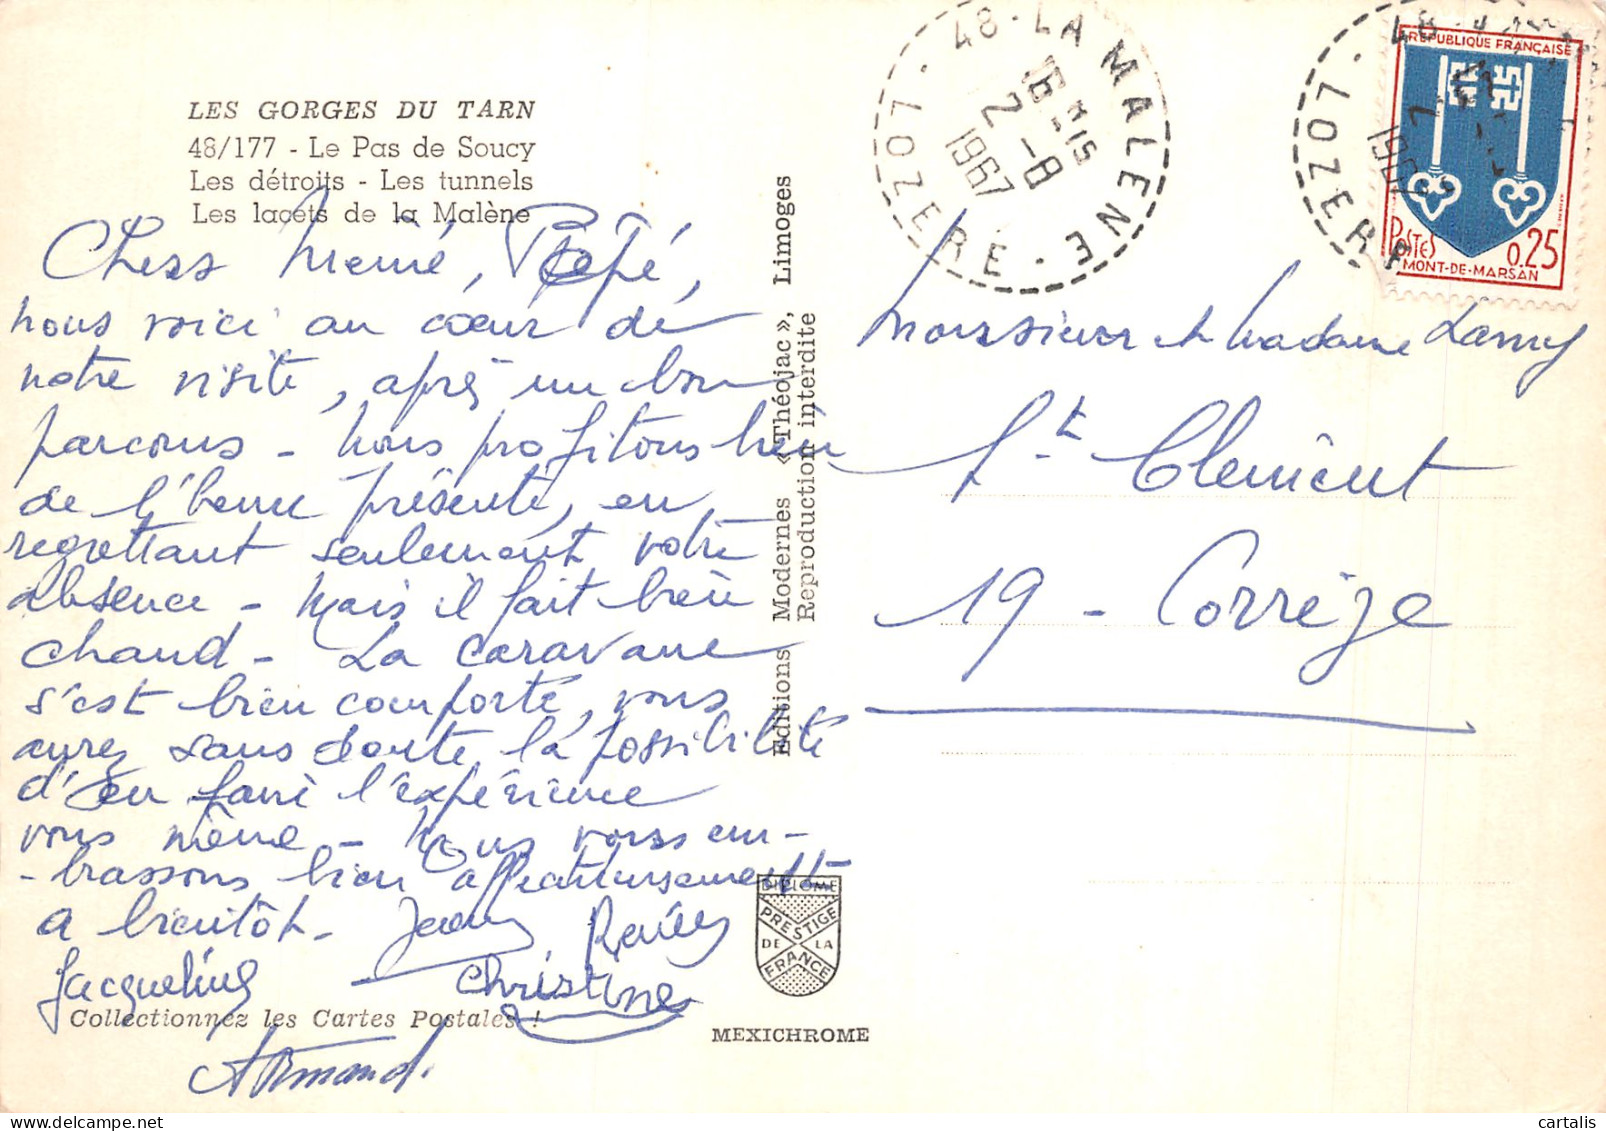 LES GORGES DU TARN
48/177 - Le Pas de Soucy
Les détroits - Les tunnels
Les lacets de la Malène
Chers Mémé, Pépé,
nous voici au cœur de
notre visite, après un bon
parcours - Nous profitons bien
de l'heure présente, en
regrettant seulement votre
absence - Mais il fait bien
chaud - La caravane
s'est bien comporté, vous
aurez sans doute la possibilité
d'en faire l'expérience
vous même - Nous vous em-
-brassons bien affectueusement
a bientôt -
Jacqueline
Christine
Armand.
Collectionnez les Cartes Postales !
Editions Modernes « Théojac », Limoges
Reproduction interdite
DIPLOME
PRESTIGE
DE LA
FRANCE
MEXICHROME
48 - LA MALENE - LOZERE
16 H 15
2 - 8
1967
48
LOZERE
1967
REPUBLIQUE FRANÇAISE
POSTES
0.25
MONT-DE-MARSAN
Monsieur et Madame Lamy
St Clément
19 - Corrèze
cartalis
delcampe.net